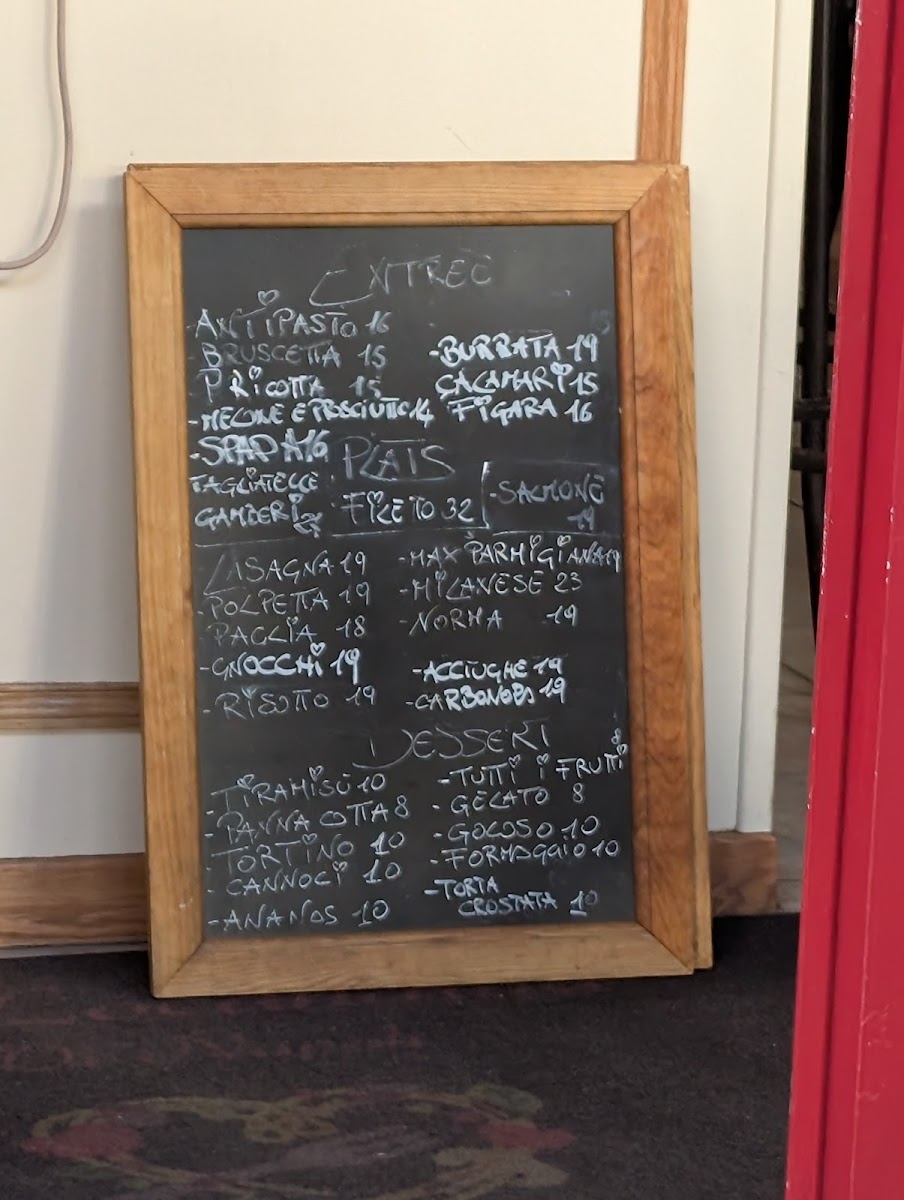 ENTREE
ANTIPASTO 16
- BRUSCETTA 15
P RICOTTA 15
- MELONE E PROSCIUTTO 14
- SPADA 16
- BURRATA 19
CALAMARI 15
FIGARA 16
PLATS
TAGLIATELLE
GAMBERI
FILETO 32
- SALMONE
19
LASAGNA 19
- POLPETTA 19
PAGLIA 18
- GNOCCHI 19
- RISOTTO 19
- MAX PARMIGIANA 19
- MILANESE 23
- NORMA 19
- ACCIUGHE 19
- CARBONARA 19
DESSERT
TIRAMISÙ 10
- PANNA COTTA 8
TORTINO 10
- CANNOLI 10
- ANANAS 10
- TUTTI I FRUTTI 8
- GELATO 8
- GOLOSO 10
- FORMAGGIO 10
- TORTA
CROSTATA 10